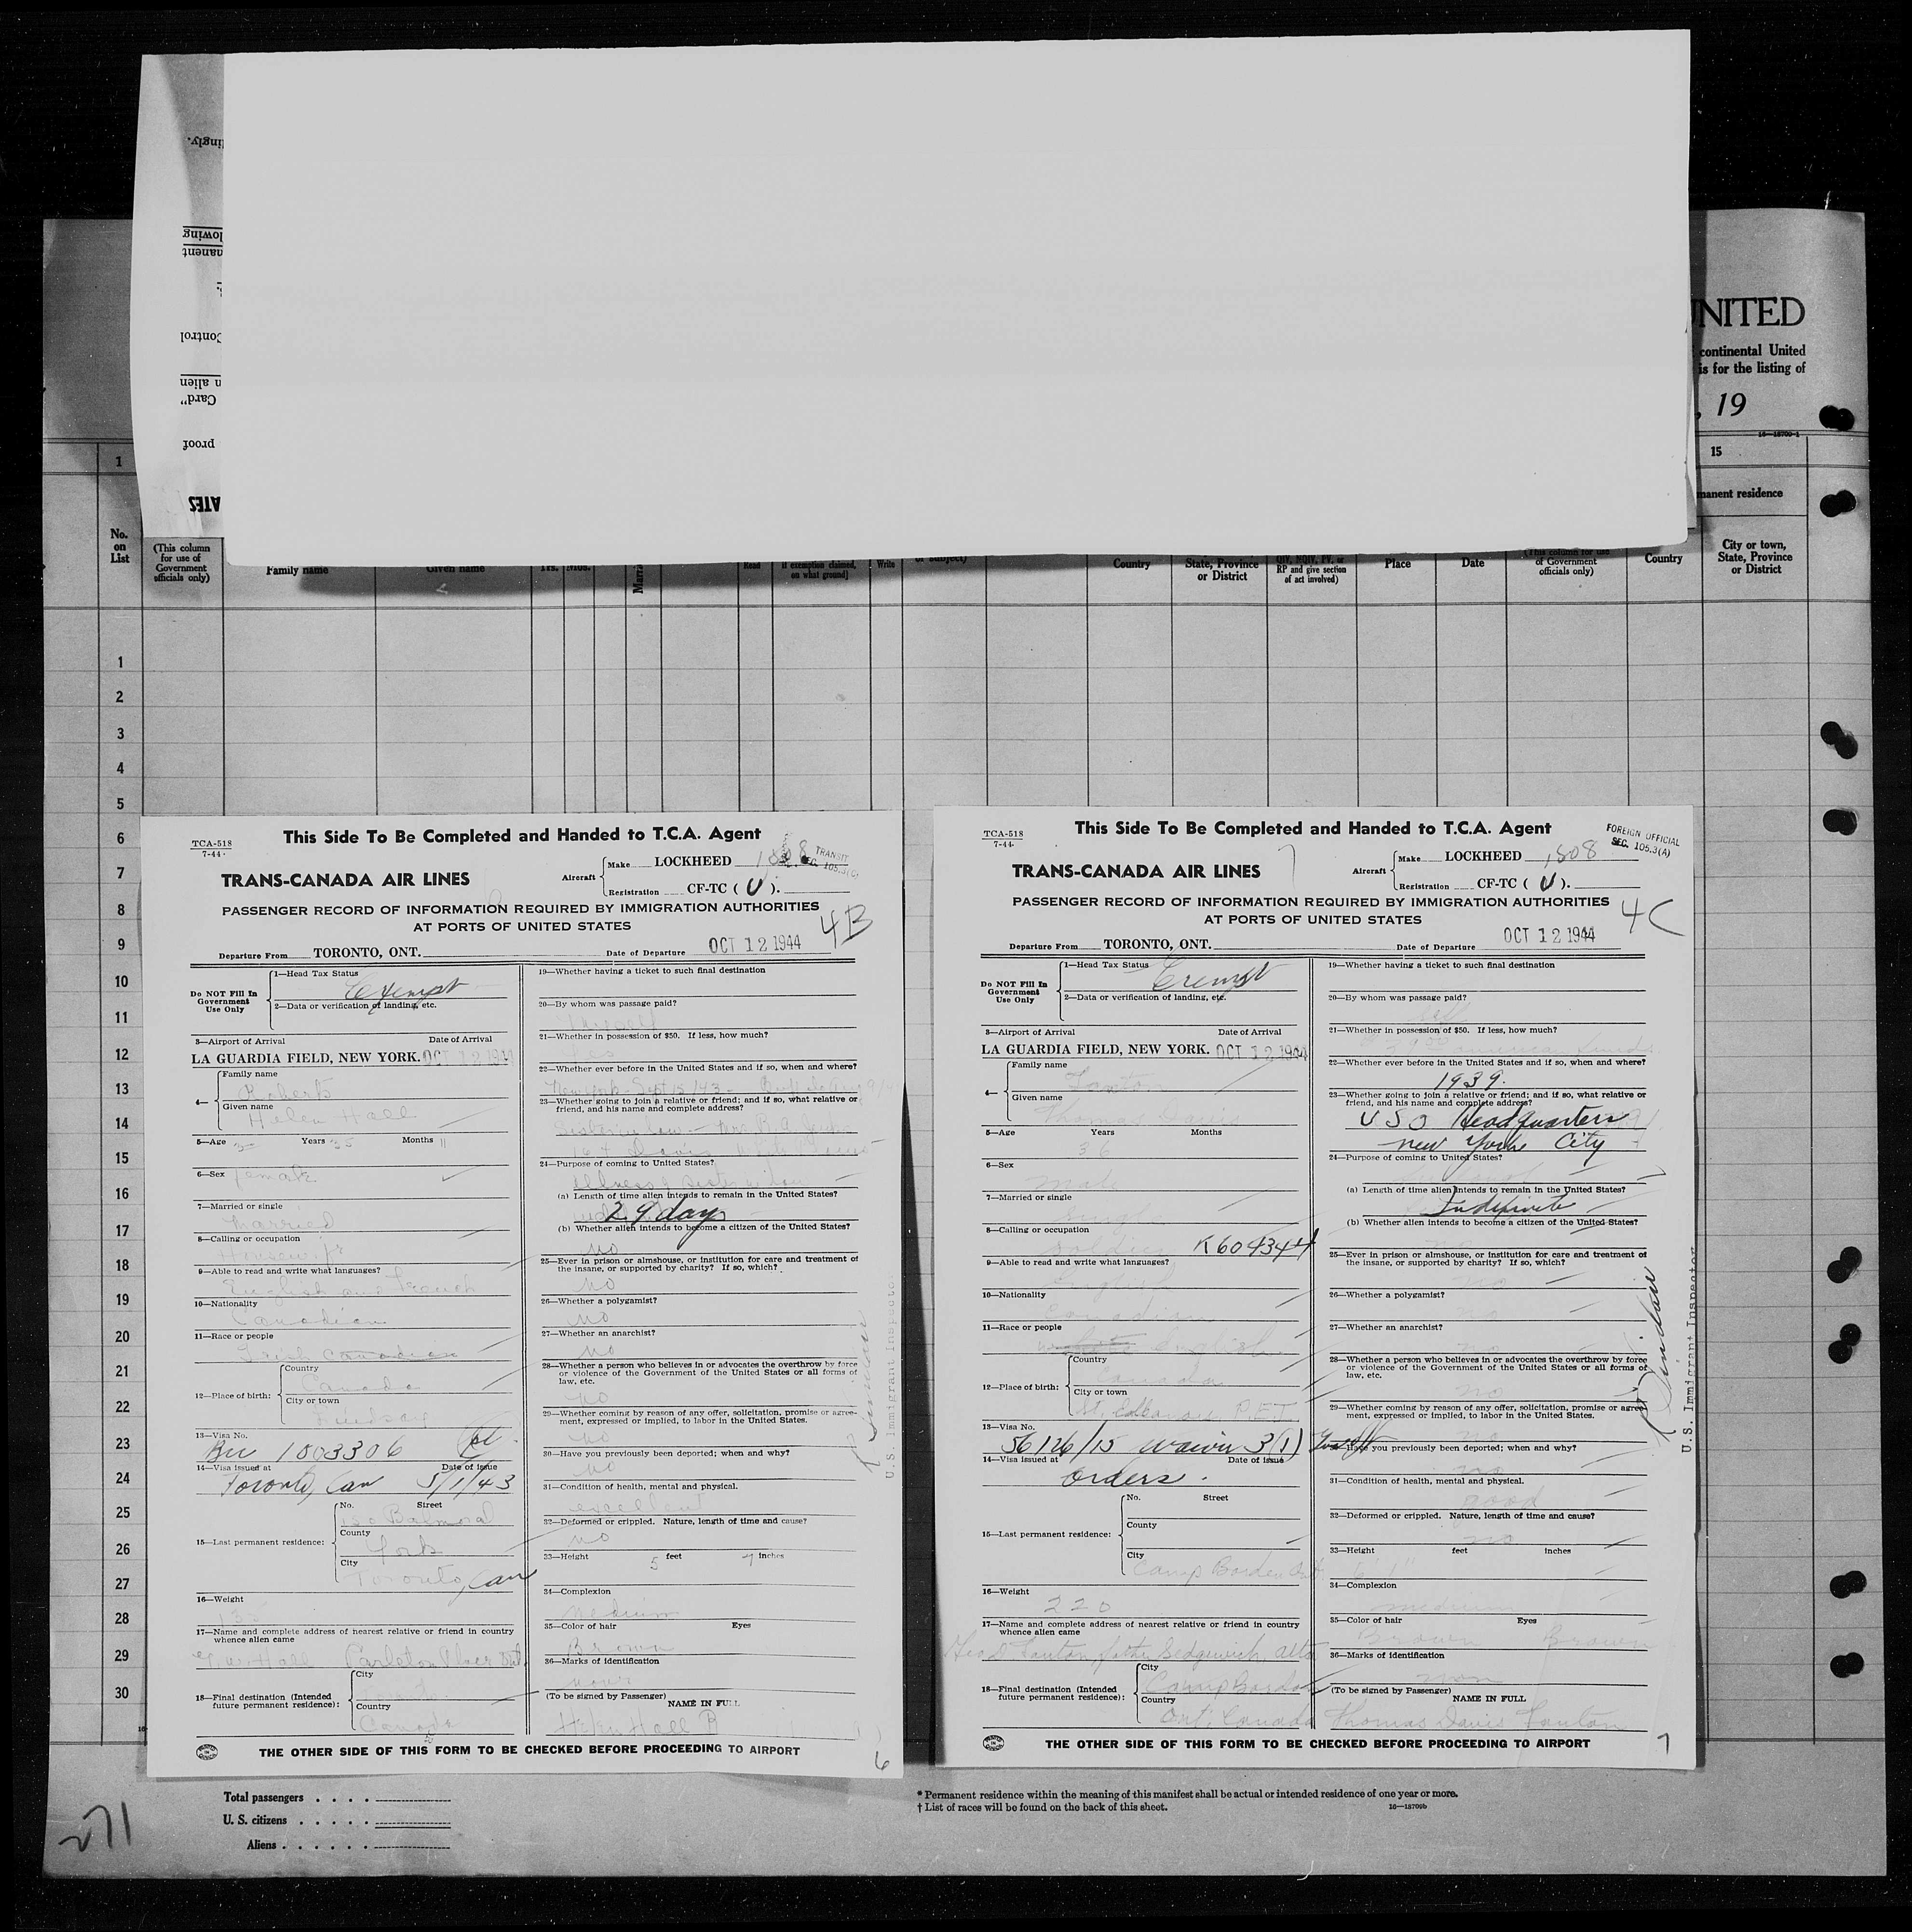 UNITED
continental United
is for the listing of
, 19
16—18709-1
ingly.
lowing
nanent
Control
n alien
Card"
proof
ATES
1
15
manent residence
No. on List
(This column for use of Government officials only)
Family name
Given name
Yrs.
Mos.
Read
if exemption claimed, on what ground]
Write
or subject)
Country
State, Province or District
QIV, NQIV, PV, or RP and give section of act involved)
Place
Date
(This column for use of Government officials only)
Country
City or town, State, Province or District
1
2
3
4
5
6
7
8
9
10
11
12
13
14
15
16
17
18
19
20
21
22
23
24
25
26
27
28
29
30
TCA-518
7-44
This Side To Be Completed and Handed to T.C.A. Agent
TRANS-CANADA AIR LINES
Aircraft
Make LOCKHEED 1808
TRANSIT
SEC. 105.3(C)
Registration CF-TC ( U ).
PASSENGER RECORD OF INFORMATION REQUIRED BY IMMIGRATION AUTHORITIES
AT PORTS OF UNITED STATES
4B
Departure From TORONTO, ONT. Date of Departure OCT 12 1944
Do NOT Fill In Government Use Only
1—Head Tax Status
Exempt
2—Data or verification of landing, etc.
3—Airport of Arrival Date of Arrival
LA GUARDIA FIELD, NEW YORK. OCT 12 1944
4—
Family name
Roberts
Given name
Helen Hall
5—Age Years 35 Months 11
6—Sex
Female
7—Married or single
Married
8—Calling or occupation
Housewife
9—Able to read and write what languages?
English and French
10—Nationality
Canadian
11—Race or people
Irish Canadian
12—Place of birth:
Country
Canada
City or town
Lindsay
13—Visa No.
1803306
14—Visa issued at Date of issue
Toronto, Can 5/1/43
15—Last permanent residence:
No. Street
150 Balmoral
County
York
City
Toronto, Can
16—Weight
135
17—Name and complete address of nearest relative or friend in country whence alien came
Hall Carleton Place Ont.
18—Final destination (Intended future permanent residence):
City
Country
Canada
19—Whether having a ticket to such final destination
20—By whom was passage paid?
21—Whether in possession of $50. If less, how much?
Yes
22—Whether ever before in the United States and if so, when and where?
New York - Sept 15/43 -
23—Whether going to join a relative or friend; and if so, what relative or friend, and his name and complete address?
Sister in law - Mrs. R. A.
24—Purpose of coming to United States?
Illness of sister in law
(a) Length of time alien intends to remain in the United States?
29 days
(b) Whether alien intends to become a citizen of the United States?
No
25—Ever in prison or almshouse, or institution for care and treatment of the insane, or supported by charity? If so, which?
No
26—Whether a polygamist?
No
27—Whether an anarchist?
No
28—Whether a person who believes in or advocates the overthrow by force or violence of the Government of the United States or all forms of law, etc.
No
29—Whether coming by reason of any offer, solicitation, promise or agreement, expressed or implied, to labor in the United States.
No
30—Have you previously been deported; when and why?
No
31—Condition of health, mental and physical.
excellent
32—Deformed or crippled. Nature, length of time and cause?
No
33—Height 5 feet 7 inches
34—Complexion
Medium
35—Color of hair Eyes
Brown
36—Marks of identification
None
(To be signed by Passenger)
NAME IN FULL
Helen Hall R
U.S. Immigrant Inspector
THE OTHER SIDE OF THIS FORM TO BE CHECKED BEFORE PROCEEDING TO AIRPORT
6
TCA-518
7-44
This Side To Be Completed and Handed to T.C.A. Agent
TRANS-CANADA AIR LINES
7
Aircraft
Make LOCKHEED 1808
FOREIGN OFFICIAL
SEC. 105.3(A)
Registration CF-TC ( U ).
PASSENGER RECORD OF INFORMATION REQUIRED BY IMMIGRATION AUTHORITIES
AT PORTS OF UNITED STATES
4C
Departure From TORONTO, ONT. Date of Departure OCT 12 1944
Do NOT Fill In Government Use Only
1—Head Tax Status
Exempt
2—Data or verification of landing, etc.
3—Airport of Arrival Date of Arrival
LA GUARDIA FIELD, NEW YORK. OCT 12 1944
4—
Family name
Fanton
Given name
Thomas Davis
5—Age Years Months
36
6—Sex
Male
7—Married or single
Single
8—Calling or occupation
Soldier K604344
9—Able to read and write what languages?
English
10—Nationality
Canadian
11—Race or people
White English
12—Place of birth:
Country
Canada
City or town
13—Visa No.
56126/15 waiver 3(1)
14—Visa issued at Date of issue
Orders.
15—Last permanent residence:
No. Street
County
City
Camp Borden Ont
16—Weight
220
17—Name and complete address of nearest relative or friend in country whence alien came
Fanton, father Sedgewick, Alta
18—Final destination (Intended future permanent residence):
City
Camp Borden
Country
Ont, Canada
19—Whether having a ticket to such final destination
20—By whom was passage paid?
Self
21—Whether in possession of $50. If less, how much?
22—Whether ever before in the United States and if so, when and where?
1939.
23—Whether going to join a relative or friend; and if so, what relative or friend, and his name and complete address?
USO Headquarters
New York City
24—Purpose of coming to United States?
(a) Length of time alien intends to remain in the United States?
Indefinite
(b) Whether alien intends to become a citizen of the United States?
no
25—Ever in prison or almshouse, or institution for care and treatment of the insane, or supported by charity? If so, which?
no
26—Whether a polygamist?
no
27—Whether an anarchist?
no
28—Whether a person who believes in or advocates the overthrow by force or violence of the Government of the United States or all forms of law, etc.
no
29—Whether coming by reason of any offer, solicitation, promise or agreement, expressed or implied, to labor in the United States.
no
30—Have you previously been deported; when and why?
no
31—Condition of health, mental and physical.
good
32—Deformed or crippled. Nature, length of time and cause?
no
33—Height feet inches
6' 1"
34—Complexion
medium
35—Color of hair Eyes
Brown Brown
36—Marks of identification
non
(To be signed by Passenger)
NAME IN FULL
Thomas Davis Fanton
U.S. Immigrant Inspector
THE OTHER SIDE OF THIS FORM TO BE CHECKED BEFORE PROCEEDING TO AIRPORT
7
Total passengers . . . .
U. S. citizens . . . . .
Aliens . . . . . .
* Permanent residence within the meaning of this manifest shall be actual or intended residence of one year or more.
† List of races will be found on the back of this sheet.
16—18709b
271